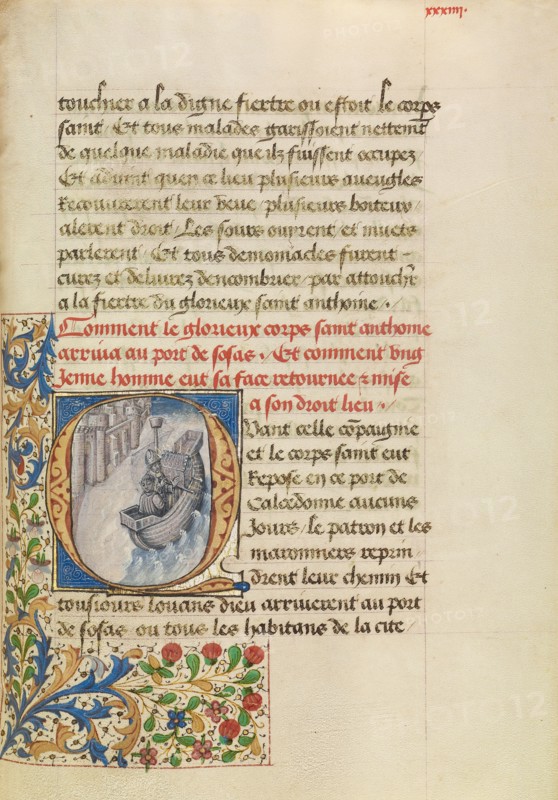 xxxiiij.
touchier a la digne fiertre ou estoit le corps
saint / Et tous malades garissoient nettemt
de quelque maladie que ilz fuissent occupez
Et aduint quen ce lieu plusieurs aueugles
Recouurerent leur veue / plusieurs boiteux /
alerent droit / Les sours ouyrent / et muets
parlerent / Et tous demoniacles furent -
curez et deliurez dencombrier / par attouchr
a la fiertre du glorieux saint anthoine / .
Comment le glorieux corps saint anthoine
arriua au port de sosas . Et comment vng
Jenne homme eut sa face retournee & mise
a son droit lieu .
Quant celle cōpaignie
et le corps saint eut
Repose en ce port de
Calcedonne aucuns
Jours / le patron et les
maronniers reprin
drent leur chemin Et
tousiours louans dieu arriuerent au port
de sosas ou tous les habitans de la cite /